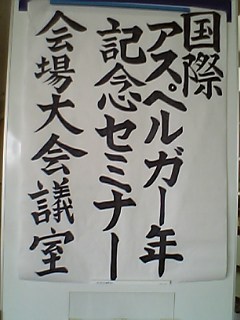 国際
アスペルガー年
記念セミナー
会場大会議室